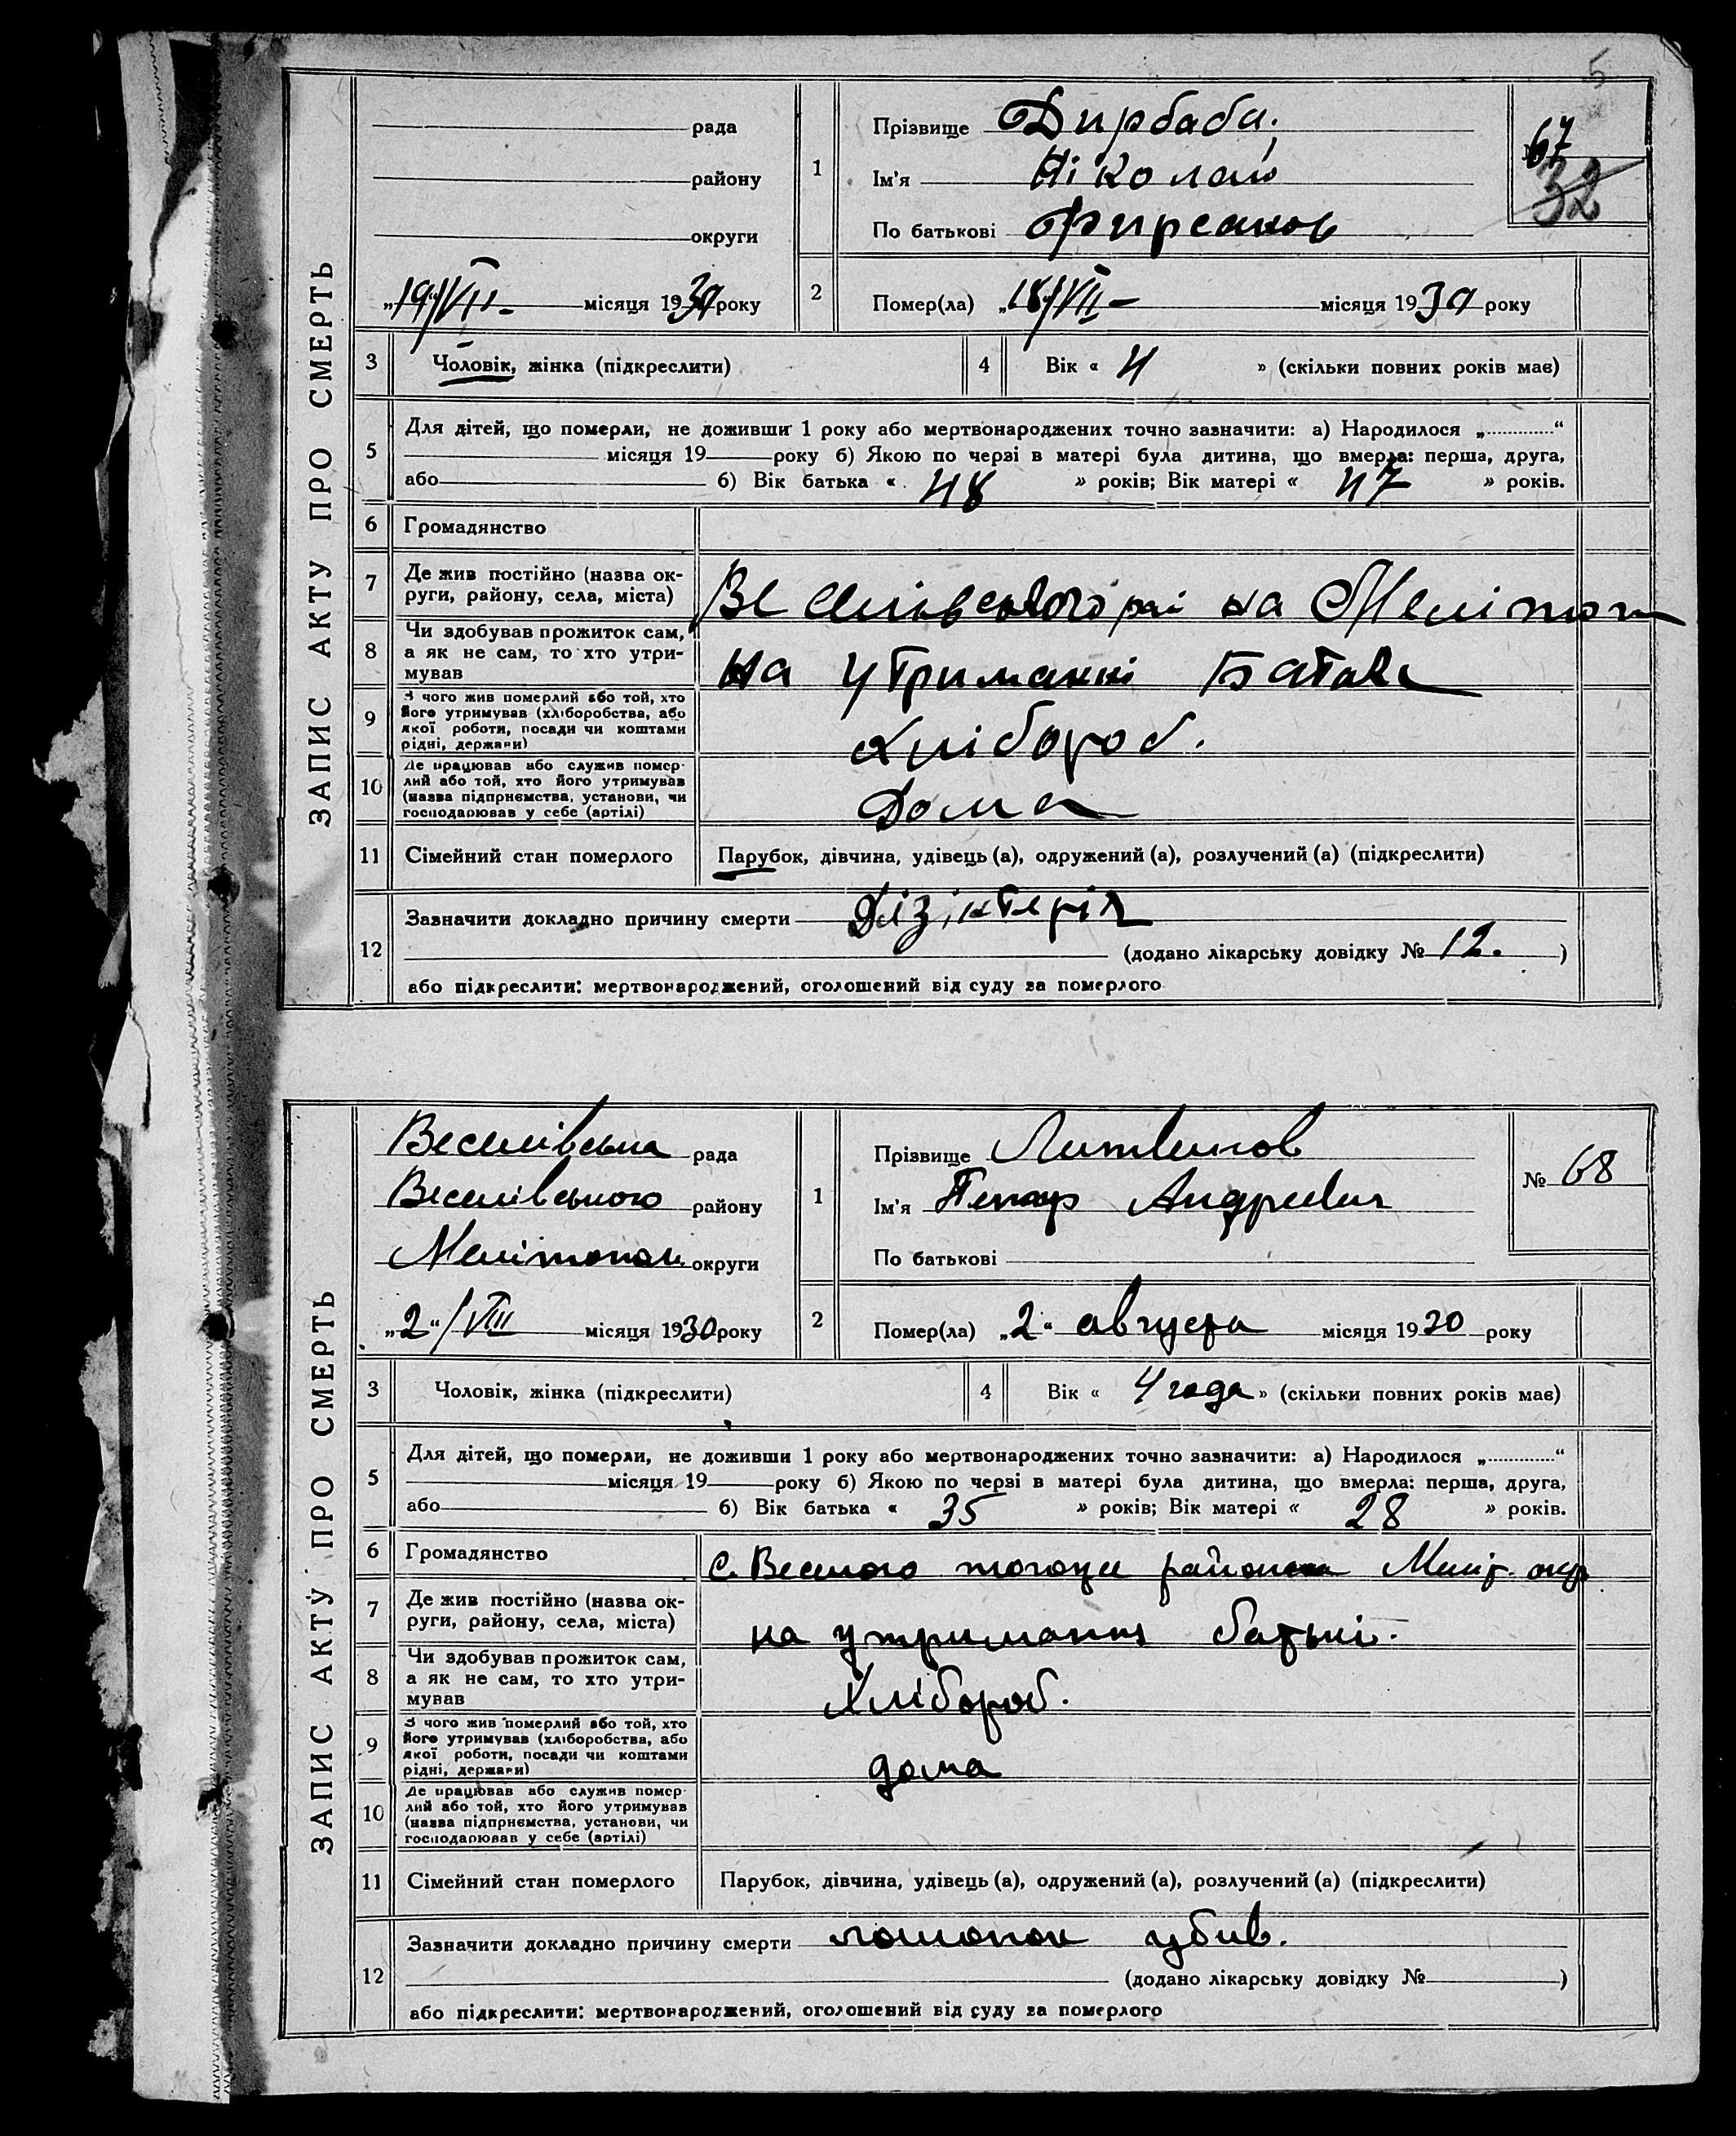 5
ЗАПИС АКТУ ПРО СМЕРТЬ
рада
району
округи
„19“/VII місяця 1930 року
1
Прізвище Дирбаба
Ім'я Ніколай
По батькові Фирсанов
67
32
2
Помер(ла) „18“/VII — місяця 1930 року
3 Чоловік, жінка (підкреслити)
4 Вік « 4 » (скільки повних років має)
5 Для дітей, що померли, не доживши 1 року або мертвонароджених точно зазначити: а) Народилося „............“
місяця 19 року б) Якою по черзі в матері була дитина, що вмерла: перша, друга,
або б) Вік батька « 48 » років; Вік матері « 47 » років.
6 Громадянство
7 Де жив постійно (назва ок-
руги, району, села, міста)
Веселівського рай на Меліто
8 Чи здобував прожиток сам,
а як не сам, то хто утри-
мував
на утриманні Батьк
9 З чого жив померлий або той, хто
його утримував (хліборобства, або
якої роботи, посади чи коштами
рідні, держави)
Хлібороб.
10 Де працював або служив помер-
лий або той, хто його утримував
(назва підприємства, установи, чи
господарював у себе (артілі)
Дома
11 Сімейний стан померлого Парубок, дівчина, удівець (а), одружений (а), розлучений (а) (підкреслити)
12 Зазначити докладно причину смерти Дізінтерія
(додано лікарську довідку № 12. )
або підкреслити: мертвонароджений, оголошений від суду за померлого
ЗАПИС АКТУ ПРО СМЕРТЬ
Веселівська рада
Веселівського району
Мелітопол. округи
„2“/VIII місяця 1930 року
1
Прізвище Литвинов
Ім'я Петр Андреевич
По батькові
№ 68
2
Помер(ла) „2“ августа місяця 1930 року
3 Чоловік, жінка (підкреслити)
4 Вік « 4 года » (скільки повних років має)
5 Для дітей, що померли, не доживши 1 року або мертвонароджених точно зазначити: а) Народилося „............“
місяця 19 року б) Якою по черзі в матері була дитина, що вмерла: перша, друга,
або б) Вік батька « 35 » років; Вік матері « 28 » років.
6 Громадянство
с. Веселого тогоже района Меліт. окр
7 Де жив постійно (назва ок-
руги, району, села, міста)
на утриманні батькі.
8 Чи здобував прожиток сам,
а як не сам, то хто утри-
мував
Хлібороб.
9 З чого жив померлий або той, хто
його утримував (хліборобства, або
якої роботи, посади чи коштами
рідні, держави)
дома
10 Де працював або служив помер-
лий або той, хто його утримував
(назва підприємства, установи, чи
господарював у себе (артілі)
11 Сімейний стан померлого Парубок, дівчина, удівець (а), одружений (а), розлучений (а) (підкреслити)
12 Зазначити докладно причину смерти лошонок убив.
(додано лікарську довідку № )
або підкреслити: мертвонароджений, оголошений від суду за померлого